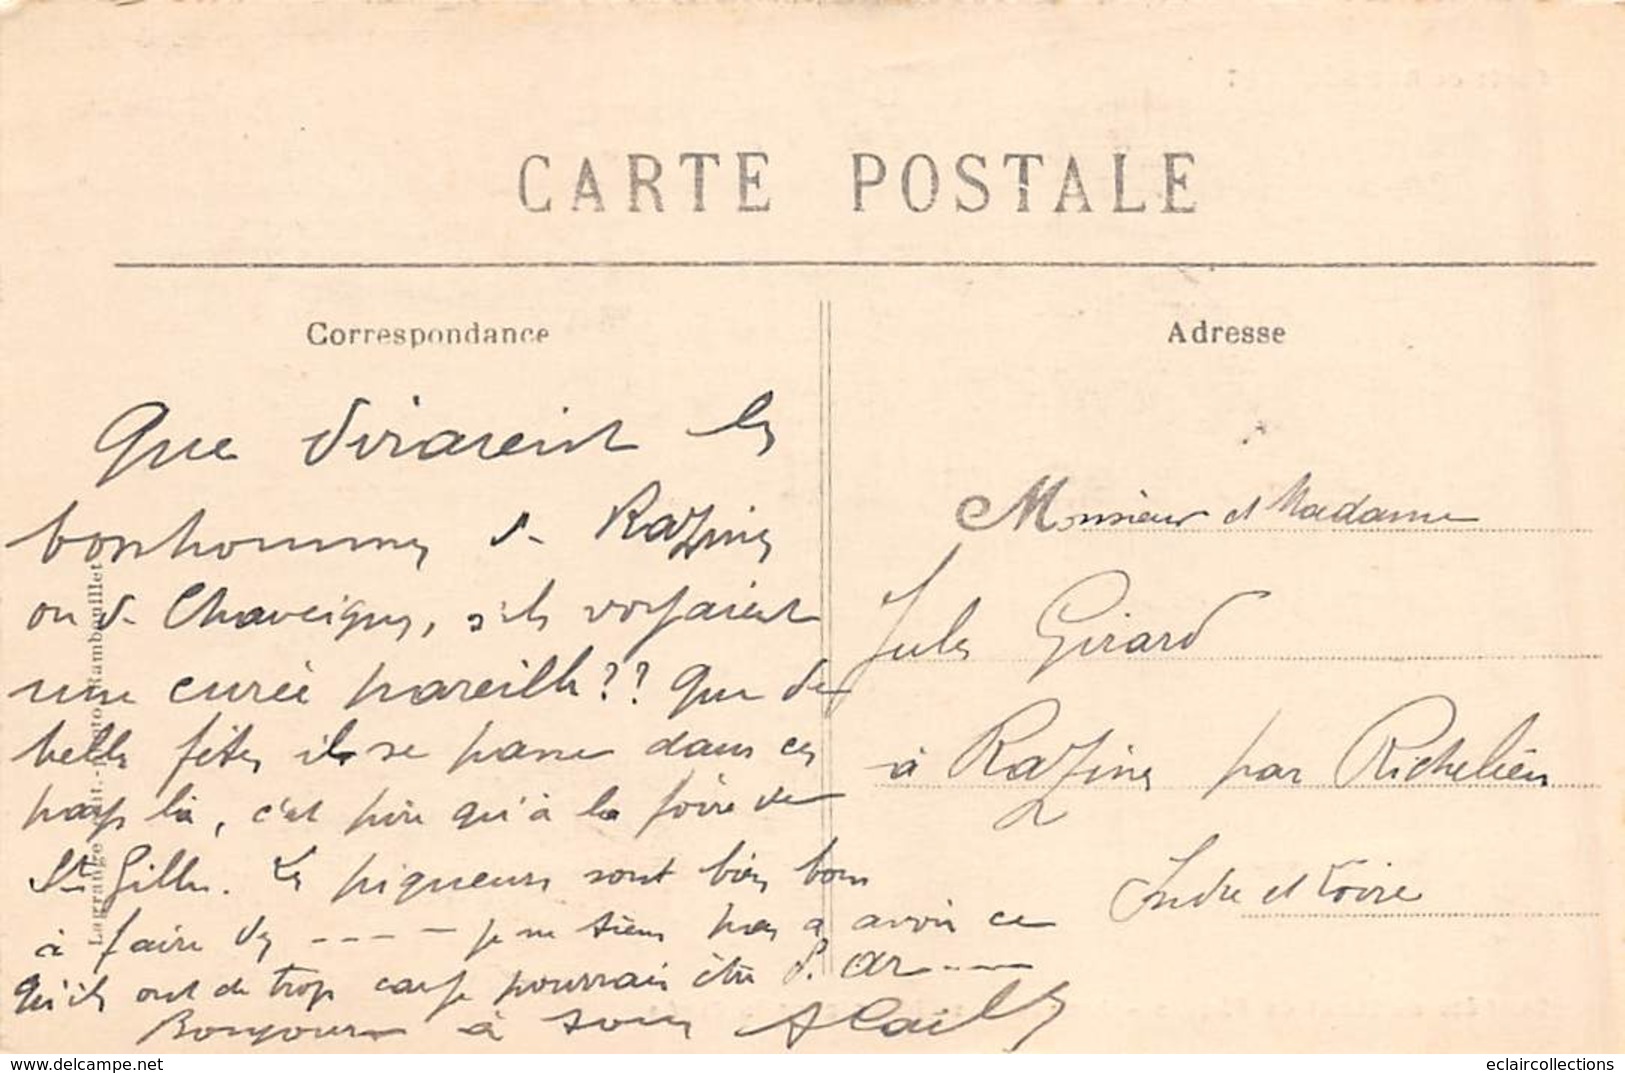 CARTE POSTALE
Correspondance
Que diraient les
bonhommes de Razines
ou de Chaveigny, s'ils voyaient
une curée pareille?? Que de
belles fêtes il se passe dans ces
pays là, c'est pire qu'à la foire de
St Gilles. Les piqueurs sont bien bons
à faire des ---- je ne tiens pas a avoir ce
qu'ils ont de trop car je pourrais être d. ar----
Bonjour à tous
Adresse
Monsieur et Madame
Jules Girard
à Razines par Richelieu
Indre et Loire
Lagrange Édit.-Photo Rambouillet
eclaircollections